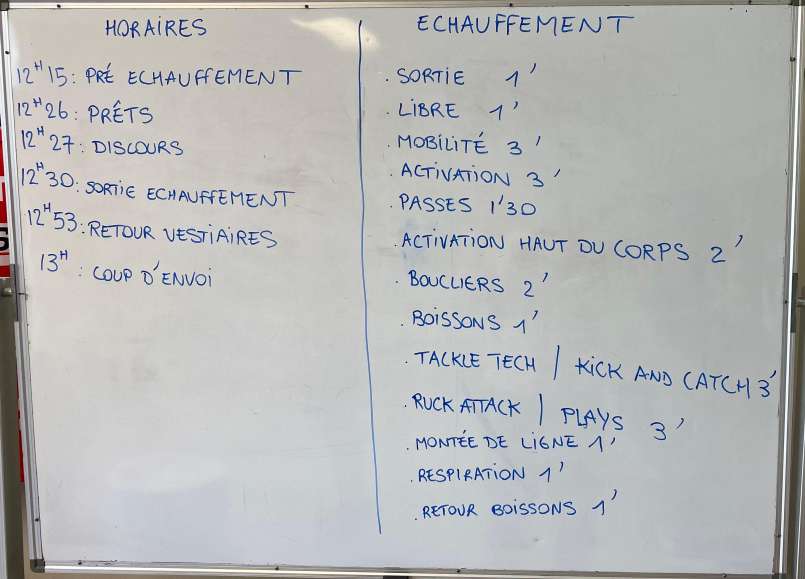 HORAIRES
12H15: PRÉ ECHAUFFEMENT
12H26: PRÊTS
12H27: DISCOURS
12H30: SORTIE ECHAUFFEMENT
12H53: RETOUR VESTIAIRES
13H: COUP D'ENVOI
ECHAUFFEMENT
. SORTIE 1'
. LIBRE 1'
. MOBILITÉ 3'
. ACTIVATION 3'
. PASSES 1'30
. ACTIVATION HAUT DU CORPS 2'
. BOUCLIERS 2'
. BOISSONS 1'
. TACKLE TECH | KICK AND CATCH 3'
. RUCK ATTACK | PLAYS 3'
. MONTÉE DE LIGNE 1'
. RESPIRATION 1'
. RETOUR BOISSONS 1'